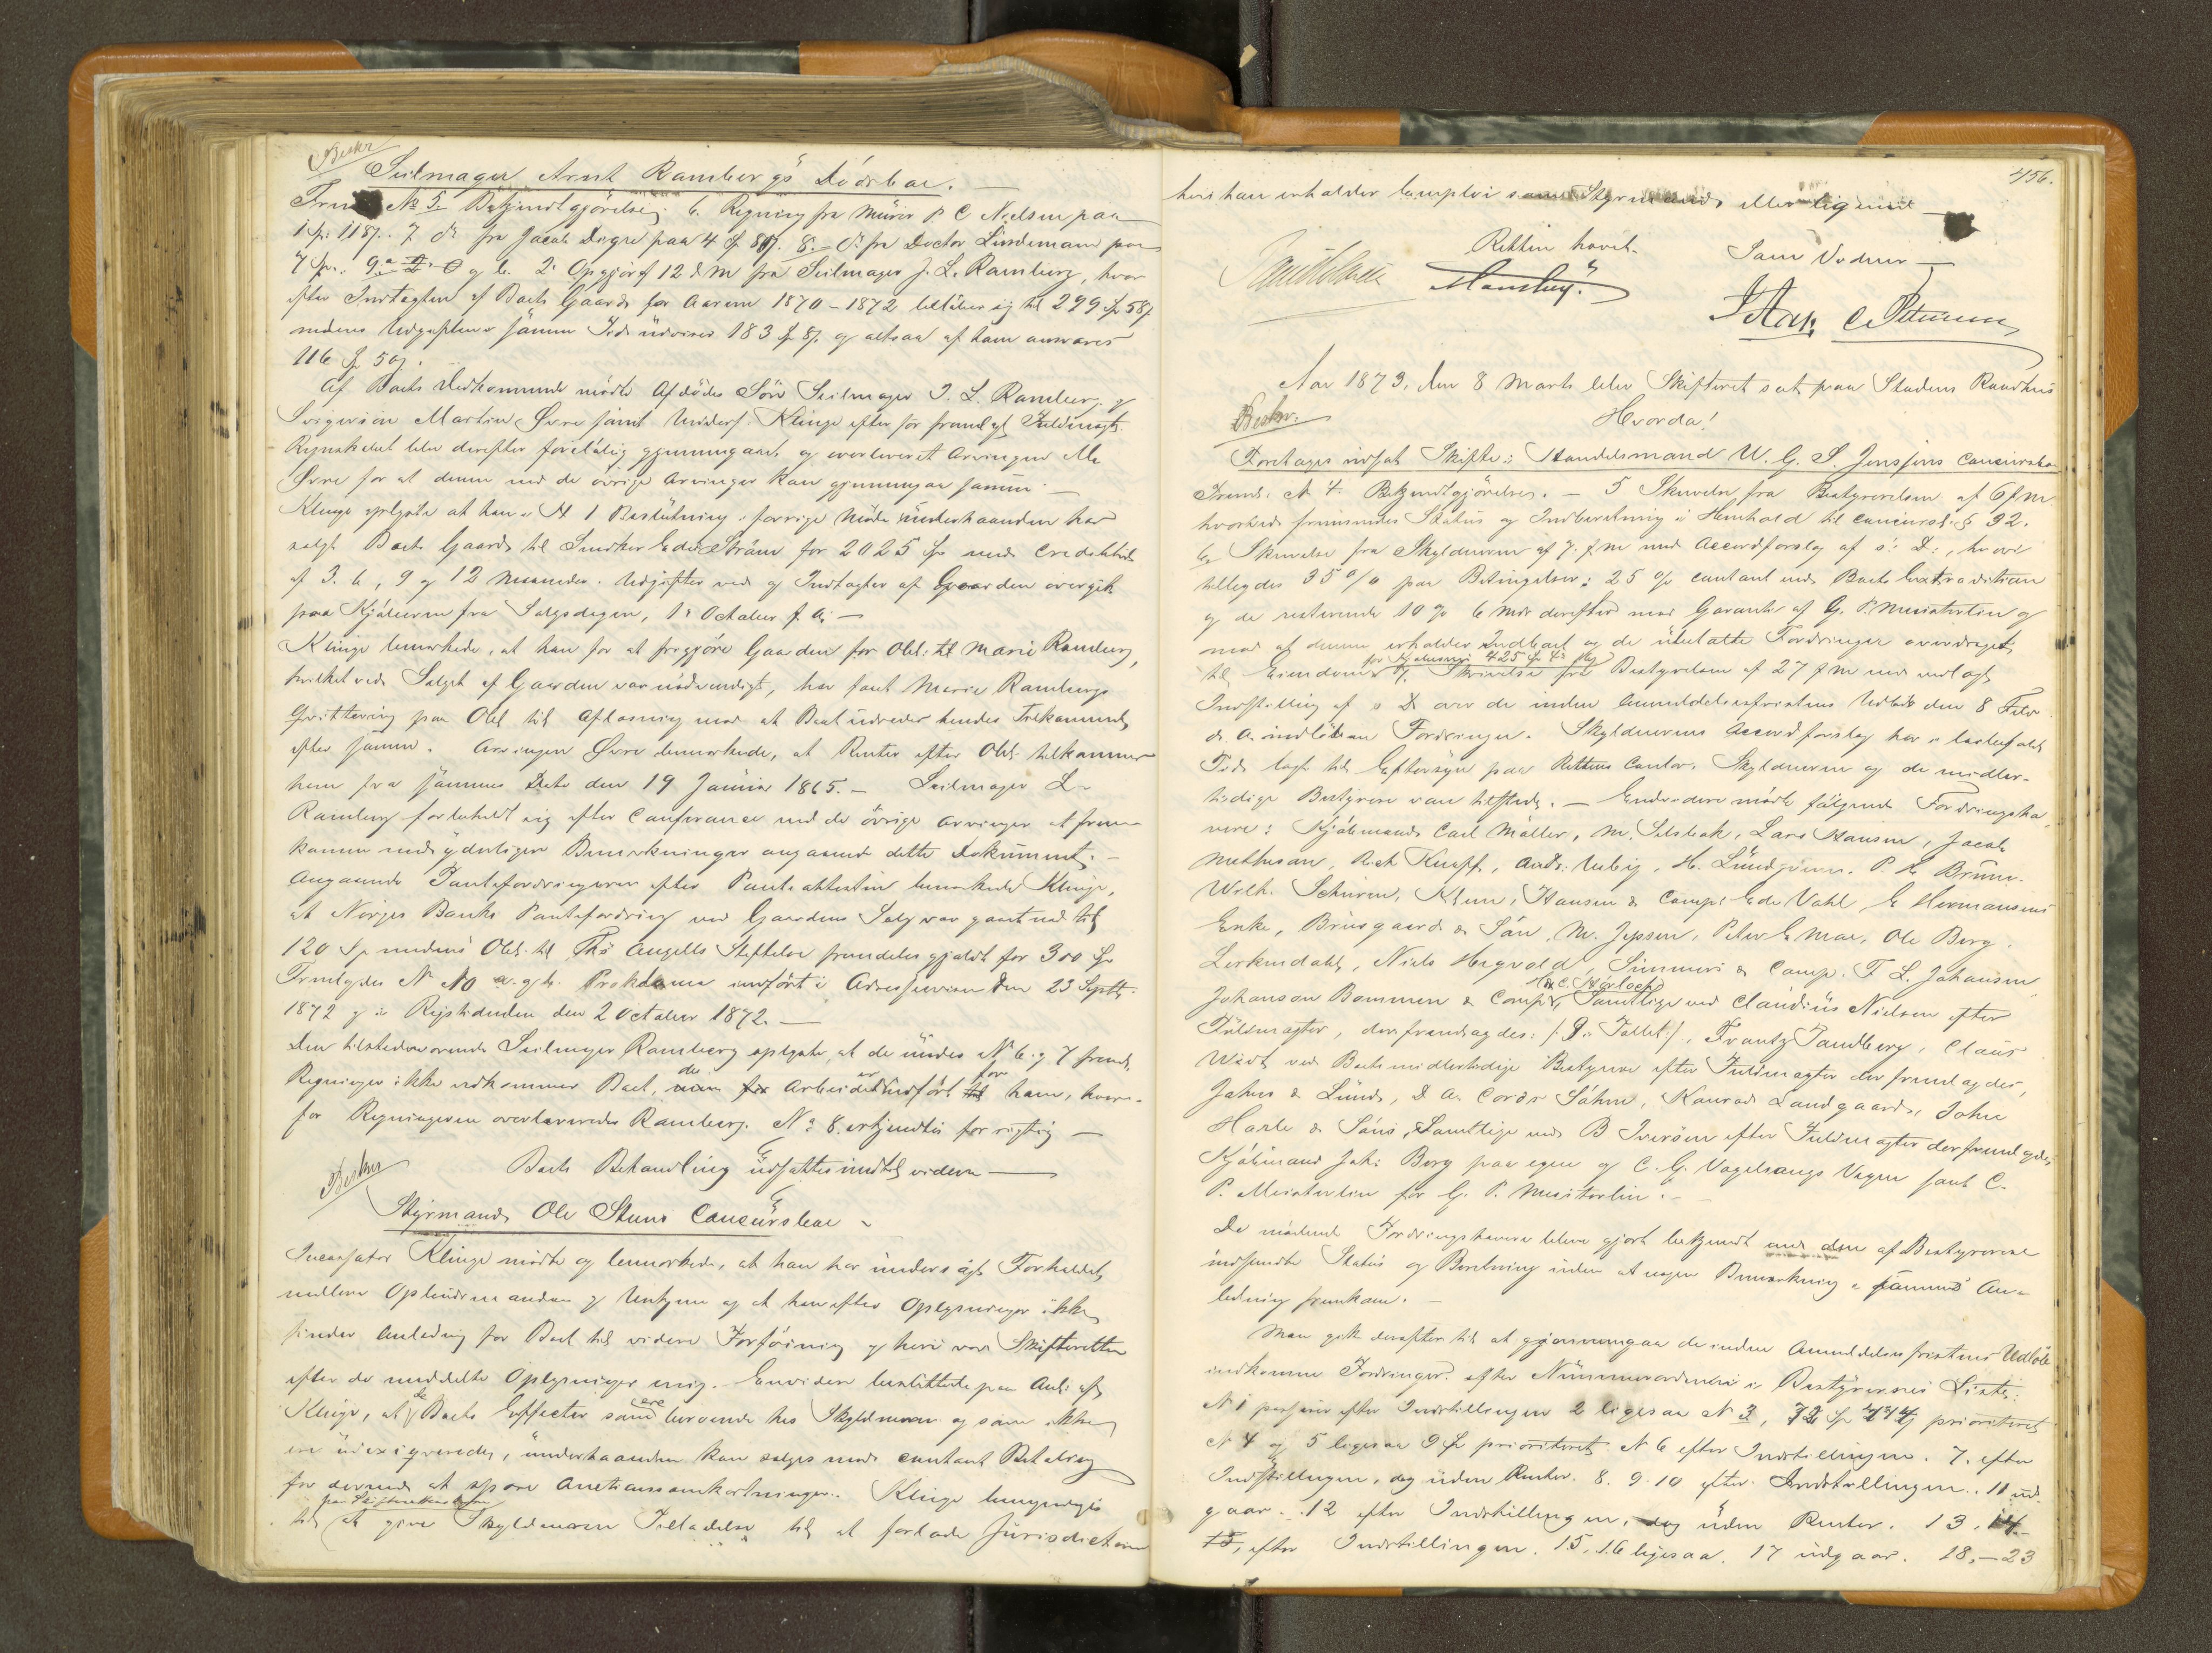 Beskr
Seilmager Arnt Rambergs Dödsbo.
No 5. Bekjendtgjörelse; 6. Regning fra Mürer P. C Nielsen paa
7 do fra Jacob Digre paa 4 8. do fra Doctor Lindemann paa
og b. 2 Opgjör af 12 d M fra Seilmager J. L. Ramberg, hvor
efter Indtægten af Boets Gaard for Aarene 1870-1872 belöber sig til 299 58
medens Udgifterne samme Tid udviser 183 8 og altsaa af ham ansvares
116 50
Af Boets Vedkommende mödte Afdödes Sön Seilmager J. L. Ramberg og
Svigersön Martin Övre samt Undersf. Klinge efter för fremlagt Fuldmagt.
Regnskabet blev derefter foreløbig gjennemgaaet og overleveret Arvingen M.
Övre for at denne med de övrige Arvinger kan gjennemgaa samme
Klinge oplyste at han i H t Beslutning i forrige Möde underhaanden har
solgt Boets Gaard til Snedker Ström for 2025 med Credittid
af 3. 6, 9 og 12 Maaneder. Udgifter ved og Indtægter af Gaarden overgik
paa Kjøberen fra Salgsdagen, 1 October f. A.
Klinge bemærkede, at han for at frigjöre Gaarden for Obl. til Marie Ramberg,
hvilket ved Salget af Gaarden var nödvendigt, har faaet Marie Rambergs
Qvittering paa Obl til Aflösning mod at Boet udreder hendes Tilkommende
efter samme. Arvingen Övre bemærkede, at Renter efter Obl. tilkommer
hem fra sammes Dato den 19 Januar 1865. Seilmager L.
Ramberg forbeholdt sig efter Conferance med de övrige Arvinger at frem-
komme med yderligere Bemærkninger angaaende dette Dokument.
Angaaende Pantefordringerne efter Panteattesten bemærkede Klinge,
at Norges Banks Pantefordring ved Gaardens Salg var gaaet ned til
120 Sp medens Obl. til Ths Angells Stiftelse fremdeles gjaldt for 300 Sp
Fremlagdes No 10 a. og b. Proklama indfört i Adresseavisen den 23 Septbr.
1872 og i Rigstidende den 2 October 1872.
Den tilstedeværende Seilmager Ramberg oplyste, at de under No 6. og 7 fremlagte
Regninger ikke vedkommer Boet, de Arbeidet er udfört for ham, hvor-
for Regningerne overleveredes Ramberg. No 8. erkjendtes for rigtig
Boets Behandling udsattes indtil videre
Beskr
Styrmand Ole Stens Concursbo
Incassator Klinge mödte og bemærkede, at han har undersögt Forholdet
mellem Opbudsmanden og og at han efter Oplysninger ikke
finder Anledning for Boet til videre Forföining og heri var Skifteretten
efter de meddelte Oplysninger enig. Envidere besluttede paa Anb. af
Klinge, at de Boets Effecter som ere beroende hos Skyldneren og som ikke
ere underhaanden kan sælges mod contant Betaling
for derved at spare Auctionsomkostninger. Klinge bemyndiges
fra Skifterettens
til at give Skyldneren Tilladelse til at forlade Jurisdictionen
456.
hvis han erholder Employ som Styrmand eller lignende
Retten hævet.
Som Vidner
Aar 1873, den 8 Marts blev Skifteret sat paa Stadens Raadhus
Hvorda!
Beskr.
Foretages udsat Skifte i Handelsmand W. G. S. Jenssens Concursbo
Fremd. No 4. Bekjendtgjörelser. 5 Skrivelse fra Bestyrelsen af 6 f m
hvorved fremsendes Status og Indberetning i Henhold til Concursl. § 92.
6. Skrivelse fra Skyldneren af 7. f m med Accordforslag af s. D:, hvori
tilbydes 35 % paa Betingelser: 25 % contant ved Boets Extradition
og de resterende 10 % 6 Mdr derefter mod Garanti af G. P.
mod at denne erholder Indboet og de ubetalte Fordringer overdraget
til Eiendom 7. Skrivelse fra Bestyrelsen af 27 f m med vedlagt
Indstilling af s D over de inden Anmeldelsesfristens Udløb den 8 Febr
d. A. indløbne Fordringer. Skyldnerens Accordforslag har i lovbefalet
Tid lagt til Eftersyn paa Rettens Contor. Skyldneren og de midler-
tidige Bestyrere vare tilstede. Endvidere mödte følgende Fordringsha-
vere: Kjöbmand Carl Möller, M. Selsbak, Lars Hansen, Jacob
Mathieson, Knoff, Andr. H. Lundgreen. P. H. Bruun.
Wilh. Schreiner, Klem, Hansen & Comp: Vahl E Hermansens
Enke, Brüsgaard & Sön, M. Jepsen, Peter Ole Berg.
Lerkendahl, Niels Hegvold & Comp. F. L. Johansen
Johanson Bommen & Comp, Samtlige ved Claudius Nielsen efter
Fuldmagter, der fremlagdes: Frantz Sandberg, Claus
ved Boets midlertidige Bestyrere efter Fuldmagter der fremlagdes,
& Lund, D A. Cords Söhne, Konrad Landgaard, John
& Söns, Samtlige ved B Iversen efter Fuldmagter der fremlagdes,
Kjöbmand Joh: Berg paa egne og C. G. Vogelsangs Vegne samt C.
P. for G. P.
De mödende Fordringshavere bleve gjort bekjendt med den af Bestyrerne
indsendte Status og Beretning uden at nogen Bemærkning i sammes An-
ledning fremkom.
Man gik derefter til at gjennemgaa de inden Anmeldelsesfristens Udløb
indkomne Fordringer efter Nummerordenen i Bestyrernes Liste:
No 1 passerer efter Indstillingen 2 ligesaa No 3, prioriteret
No 4 og 5 ligesaa 9 prioriteret No 6 efter Indstillingen. 7. efter
Indstillingen, dog uden Renter. 8. 9. 10 efter Indstillingen. 11 ud-
gaar. 12 efter Indstillingen, dog uden Renter. 13. 14
15, efter Indstillingen. 15. 16 ligesaa. 17 udgaar. 18.-23